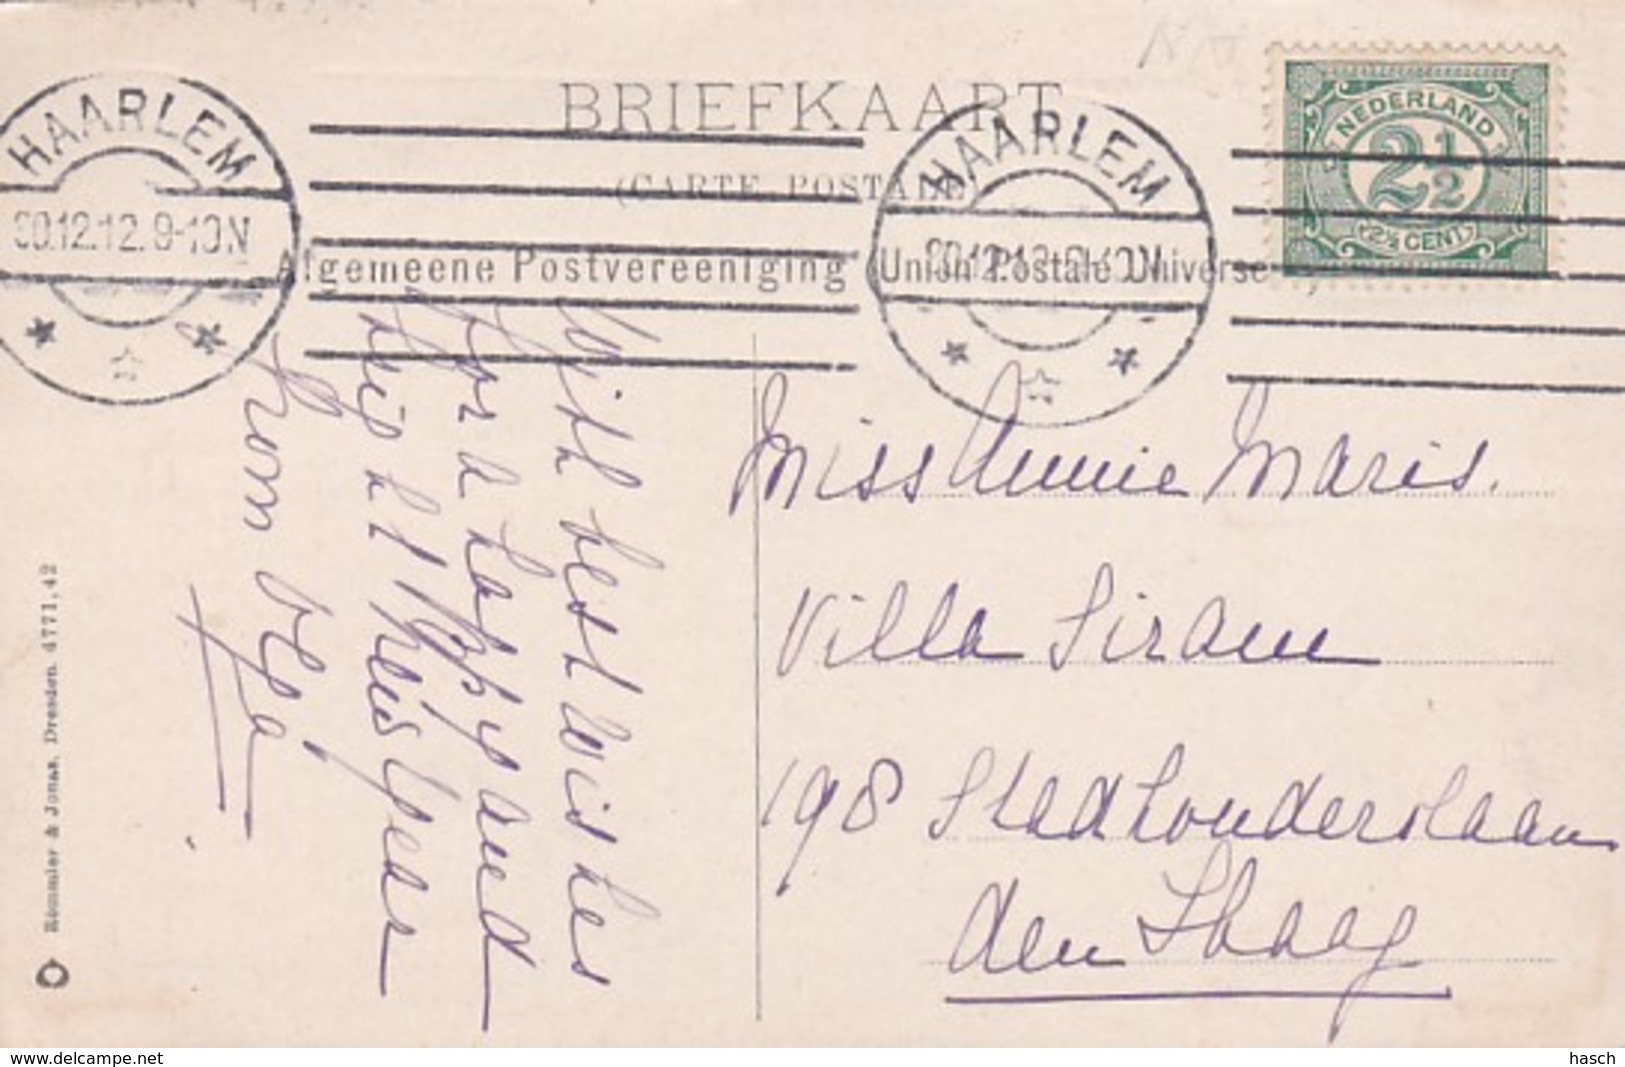 BRIEFKAART
(CARTE POSTALE)
Algemeene Postvereeniging (Union Postale Universelle)
HAARLEM
30.12.12. 9-10.N
HAARLEM
30.12.12. 9-10.N
NEDERLAND
2½
2½ CENT
With best wishes
for a happy and
New Year
from Olga
Miss Annie Maris.
Villa Siram
198 Stadhouderslaan
den Haag
Römmler & Jonas, Dresden 47771,42
www.delcampe.net
hasch